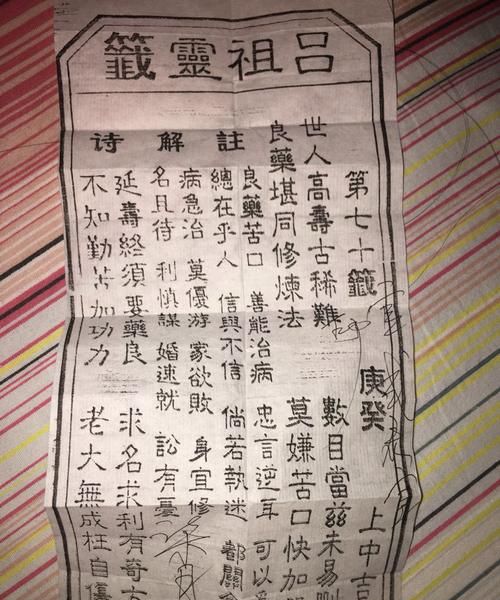 吕祖靈籤
第七十籤 庚癸 上中吉
世人高壽古稀難 數目當茲未易
良藥堪同修煉法 莫嫌苦口快加
註
良藥苦口 善能治病 忠言逆耳 可以
總在乎人 信與不信 倘若執迷 都關
解
病急治 莫優游 家欲敗 身宜修
名且待 利慎謀 婚速就 訟有憂
诗
延壽終須要藥良 求名求利有奇
不知勤苦加功力 老大無成枉自